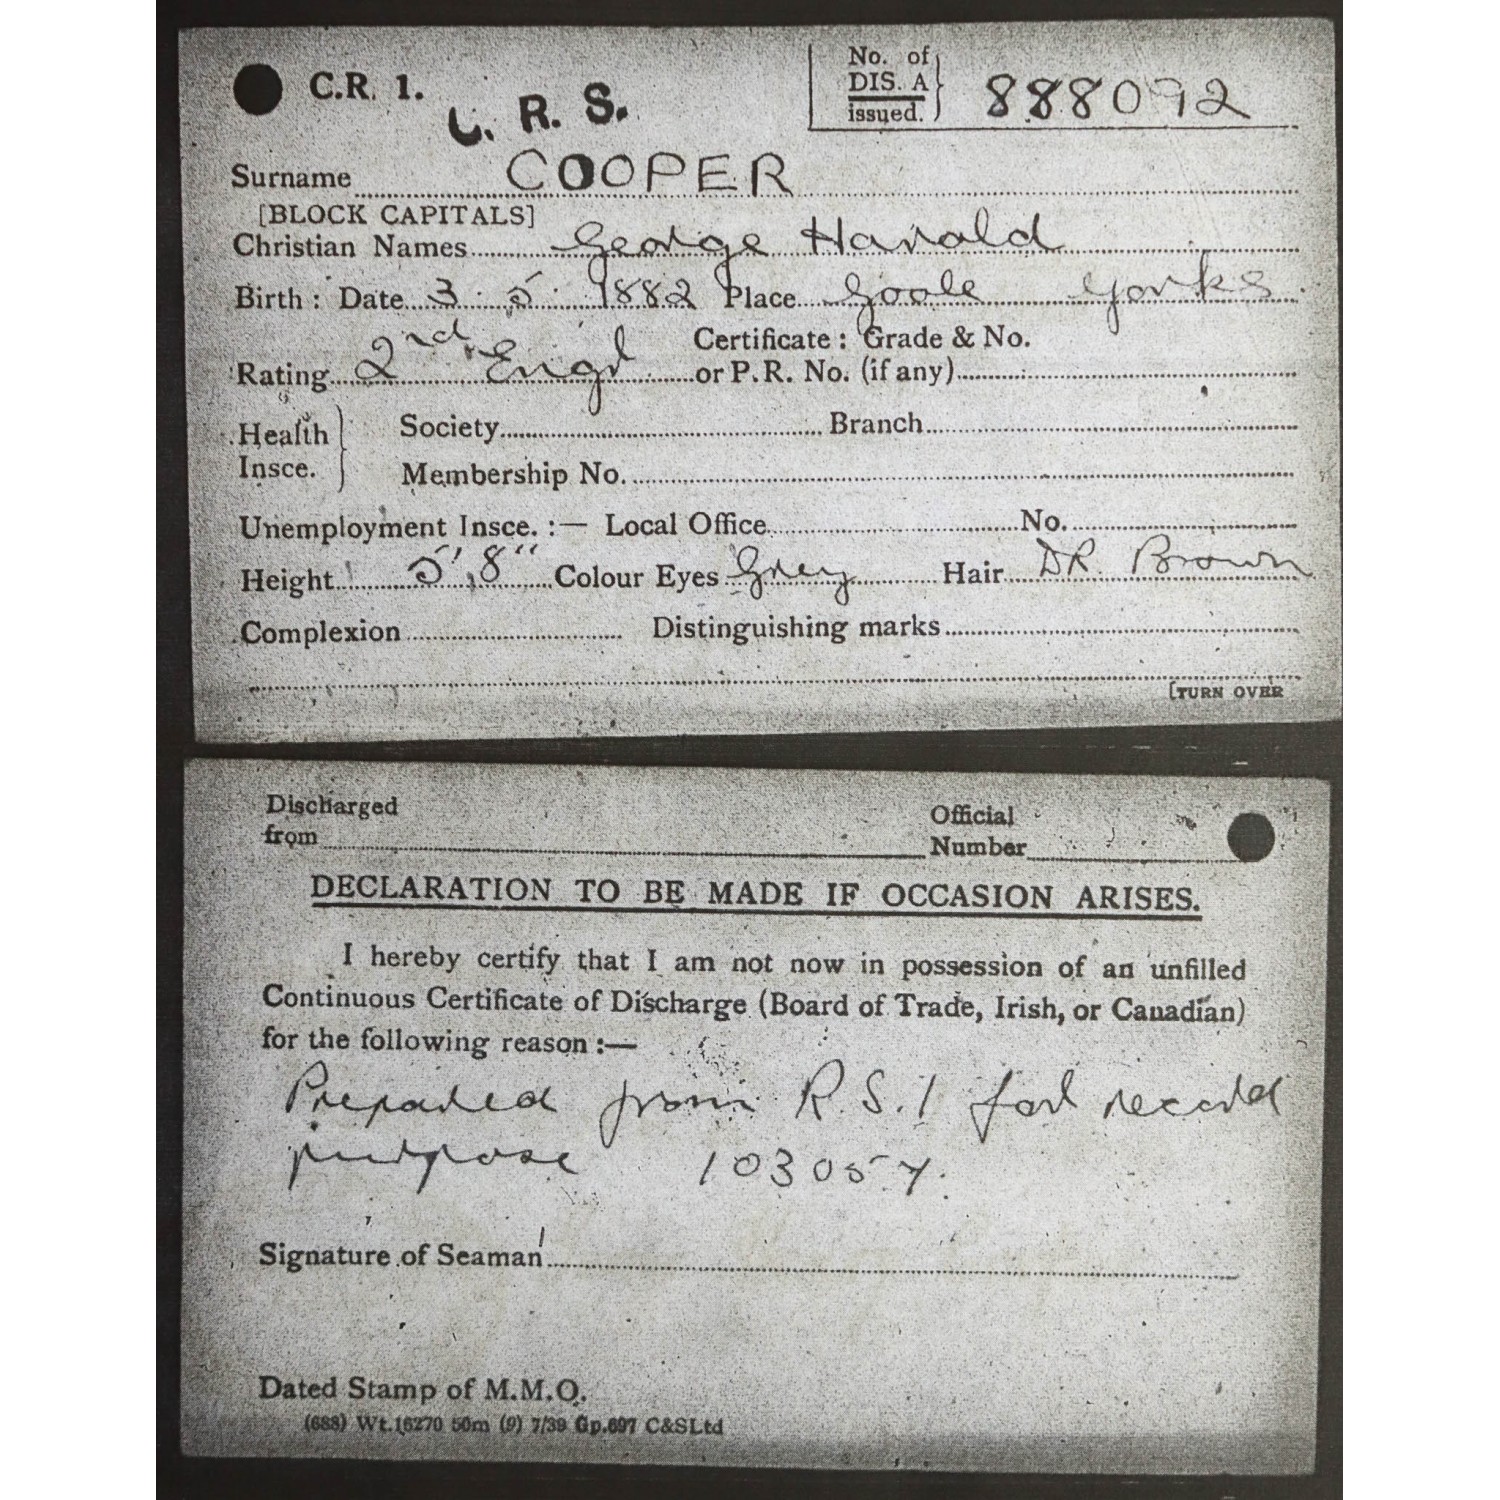 C.R. 1.
C. R. S.
No. of
DIS. A
issued.
888092
Surname COOPER
[BLOCK CAPITALS]
Christian Names George Harold
Birth : Date 3 . 5 . 1882 Place Goole Yorks
Certificate : Grade & No.
Rating 2nd Engr or P.R. No. (if any)
Health Insce. Society Branch
Membership No.
Unemployment Insce. :— Local Office No.
Height 5', 8" Colour Eyes Grey Hair DR. Brown
Complexion Distinguishing marks
[TURN OVER
Discharged from Official Number
DECLARATION TO BE MADE IF OCCASION ARISES.
I hereby certify that I am not now in possession of an unfilled
Continuous Certificate of Discharge (Board of Trade, Irish, or Canadian)
for the following reason :—
Prepared from R.S.1 for record
purpose 103057.
Signature of Seaman
Dated Stamp of M.M.O.
(688) Wt.16270 50m (9) 7/39 Gp.697 C&SLtd